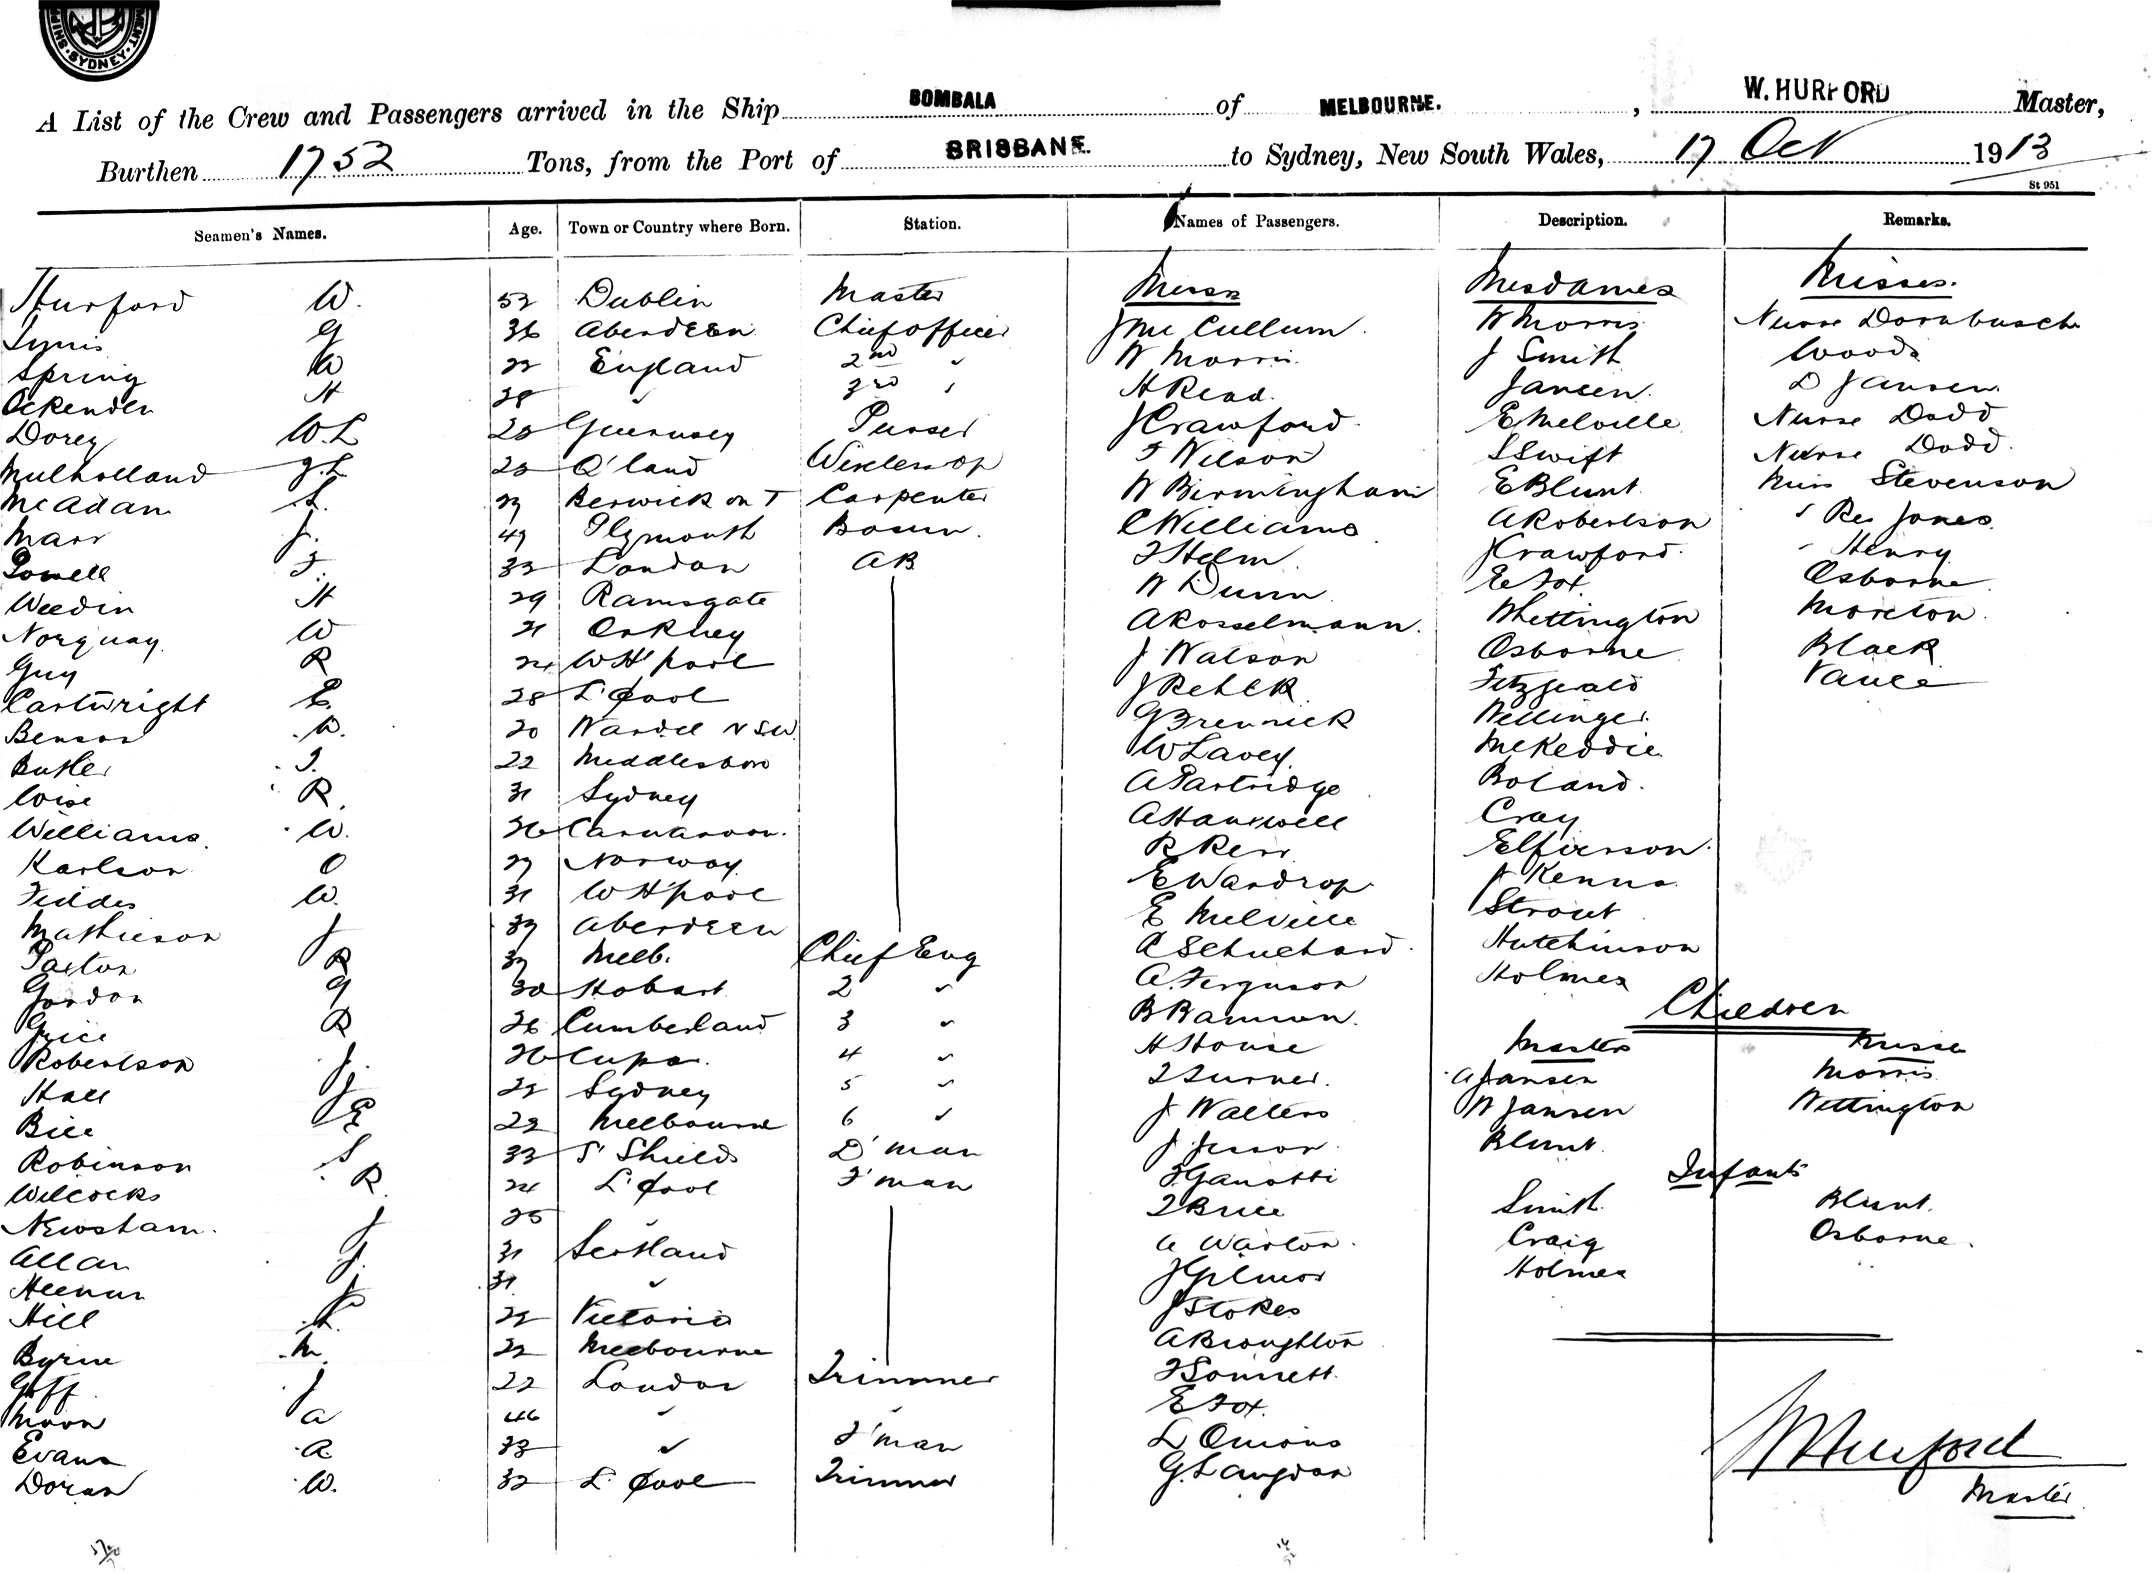 SHIP MENT SYDNEY
A List of the Crew and Passengers arrived in the Ship BOMBALA of MELBOURNE. , W. HURFORD Master,
Burthen 1752 Tons, from the Port of BRISBANE. to Sydney, New South Wales, 17 Oct 1913
St 951
Seamen's Names. Age. Town or Country where Born. Station. Names of Passengers. Description. Remarks.
Messrs Mesdames Misses.
Hurford W. 52 Dublin Master J McCullum. W Morris Nurse Dornbusch
G 36 Aberdeen Chief Officer W Morris. J Smith Woods
Spring W 22 England 2nd " H Read. Jansen. D Jansen.
Ockenden H 28 " 3rd " J Crawford. E Melville Nurse Dodd
Dorey W.L 25 Guernsey Purser F Wilson S Swift Nurse Dodd.
Mulholland J.L 25 Q'land Wireless Op W Birmingham E Blunt. Miss Stevenson
McAdam A. 29 Berwick on T Carpenter C Williams A Robertson " Rev Jones
Marr J. 49 Plymouth Bosun. F Helm. J Crawford. " Henry
Powell F. 33 London AB W Dunn. E Fox. Osborne
Weedin H 29 Ramsgate A Rosselmann. Whettington Moreton.
Norquay. W 21 Orkney J Watson Osborne Black
Guy R 24 W H'pool J Rehck Fitzgerald Vance
Cartwright E. 28 L'pool G Brennick Wellinger.
Benson A. 20 Wardel NSW. W Lavey. McKeddie
Butler T. 22 Middlesboro A Partridge Boland.
Wise R. 31 Sydney A Hanswell Cray
Williams. W. 26 Carnarvon. R Kerr Elfverson.
Karlson O 29 Norway. E Wardrop. J Kenna.
Fiddes W. 31 W H'pool E Melville Strout
Mathieson J 39 Aberdeen A Schuchard. Hutchinson
Paxton R 39 Melb. Chief Eng A. Ferguson Holmes
Gordon G 30 Hobart 2 " B Bannon. Children
Grice R 26 Cumberland 3 " H House Masters Misses
Robertson J. 26 Cupar. 4 " T Turner. A Jansen Morris
Hall J. 22 Sydney 5 " J Walters W Jansen Wettington
Bice E 22 Melbourne 6 " J Jesson. Blunt.
Robinson S 33 S' Shields D'man F Ganotti Infants
Wilcocks R. 24 L'pool F'man T Brice Smith. Blunt.
Newsham. J 25 " A Warton. Craig Osborne.
Allan J. 31 Scotland J Gilmor Holmes
J 31 " J Stokes
Hill A. 22 Victoria A Broughton
Byrne M. 22 Melbourne F Sonnett.
Goff J 22 London Trimmer E Fox.
Moon A 46 " " L Onions
Evans A. 33 " F'man G. Langdon
Doran W. 32 L'pool Trimmer
W Hurford
Master.